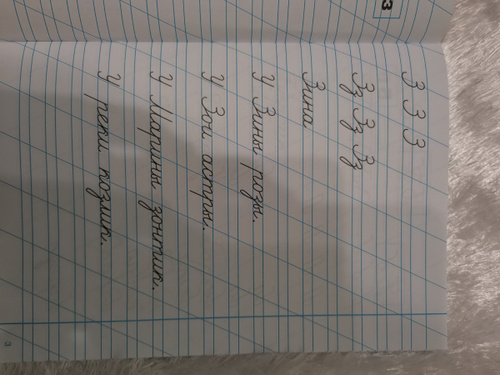 З
З З З
Зз Зз Зз
Зина
У Зины розы.
У Зои астры.
У Марины зонтик.
У реки козлик.
3